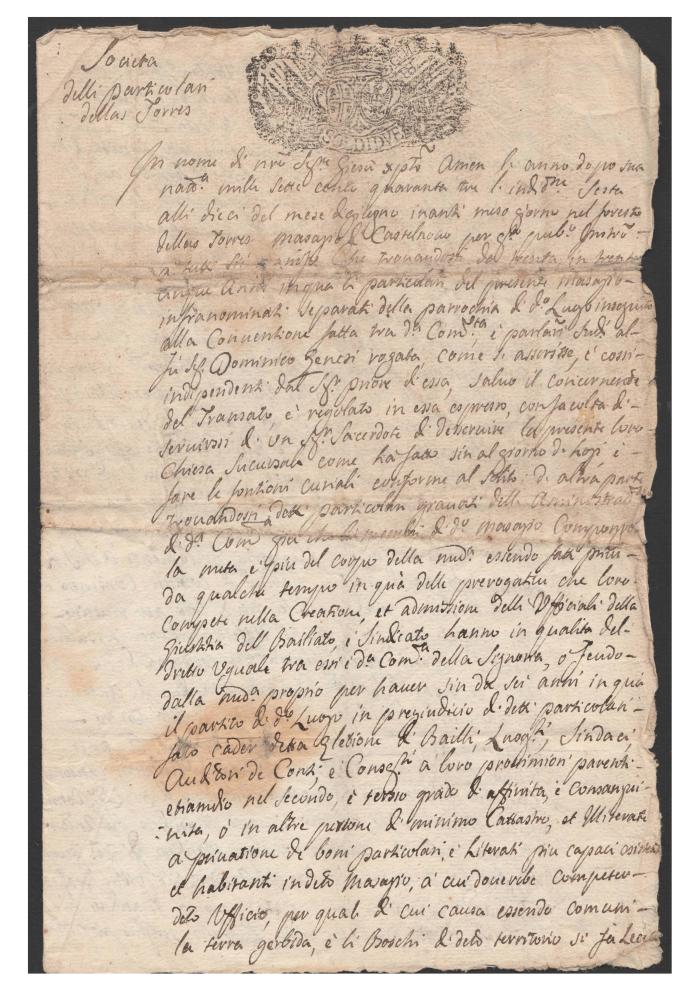 Societa
delli particolari
dellas Torres
SOLDI DVE
In nome di nro Sigre Giesù Xpto Amen l'anno dopo sua
natta mille sette cento quaranta tre l'indne sesta
alli dieci del mese di giugno inanti mezo giorno nel foresto
dellas Torres Masagio di Castelnovo per qto pubo Instro
a tutti sia che trovandosi dal trenta in trenta
cinque Anni in qua li particolari del presente masagio
infranominati separati della parrochia di do Luogo inseguito
alla Conventione fatta tra da Comta e parlari sudi al
fu Sigr Dominico Genesi rogata, come si asserisse, e cossi
independenti dal Sigr priore di essa, salvo il concernente
del Transato, e regolato in essa espresso, con facolta di
servirsi di un Sigr Sacerdote di deservire la presente loro
Chiesa sucursale come ha fatto sin al giorno di hogi e
fare le fontioni curiali conforme al solito: di altra parte
trovandosi detti particolari gravati della Aministrane
di da Comta li membri di do masagio Compongo
la metà e piu del corpo della muda essendo stati privi
da qualche tempo in quà delle prerogative che loro
compete nella Creatione, et admissione delli Ufficiali della
Giustitia del Bailiato, e Sindicato hanno in qualita del
dritto Uguale tra essi e da Comta della Signoria, o feudo
dalla muda proprio per haver sin da sei anni in quà
il partito di do Luogo in pregiudicio di detti particolari
fato cader detta Eletione di Bailli, Luogti, Sindaci,
Auditori de Conti, e Consegti a loro prossimioni parenti
etiamdio nel secondo, e terzo grado di affinita, e consangui
nita, ò in altre persone di minimo Cattastro, et Illiterate
a privatione de boni particolari, e literati piu capaci
et habitanti in deto Masagio, à cui doverebe competer
deto Ufficio, per quali di cui causa essendo comuni
la terra gerbida, e li Boschi di deto territorio si fa